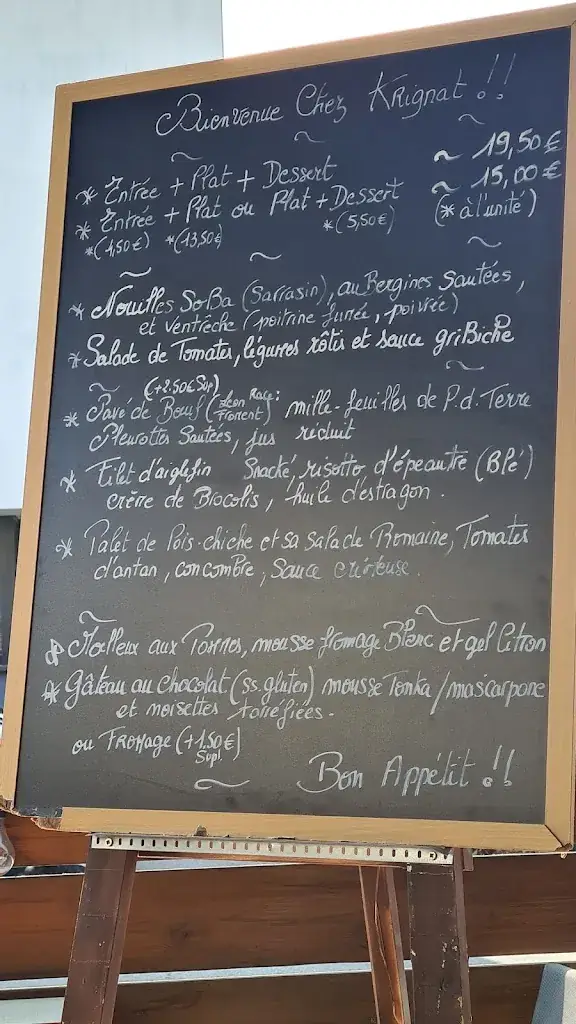 Bienvenue Chez Krignat !!
* Entrée + Plat + Dessert ~ 19,50€
* Entrée + Plat ou Plat + Dessert ~ 15,00€
*(4,50€) *(13,50€) *(5,50€) (* à l'unité)
* Nouilles SoBa (Sarrasin), auBergines Sautées,
et ventrêche (poitrine fumée, poivrée)
* Salade de Tomates, légumes rôtis et sauce griBiche
(+2.50€ Sup)
* Pavé de Bœuf ( Race: mille-feuilles de P.d.Terre
Pleurottes Sautées, jus réduit
* Filet d'aiglefin Snacké, risotto d'épeautre (BLé)
crème de Brocolis, huile d'estragon.
* Palet de Pois-chiche et sa salade Romaine, Tomates
d'antan, concomBre, Sauce crémeuse.
* Moelleux aux Pommes, mousse fromage Blanc et gel Citron
* Gâteau au chocolat (ss.gluten) mousse Tonka/mascarpone
et noisettes torréfiées.
ou FRomage (+1.50€)
Supl.
Bon Appétit !!